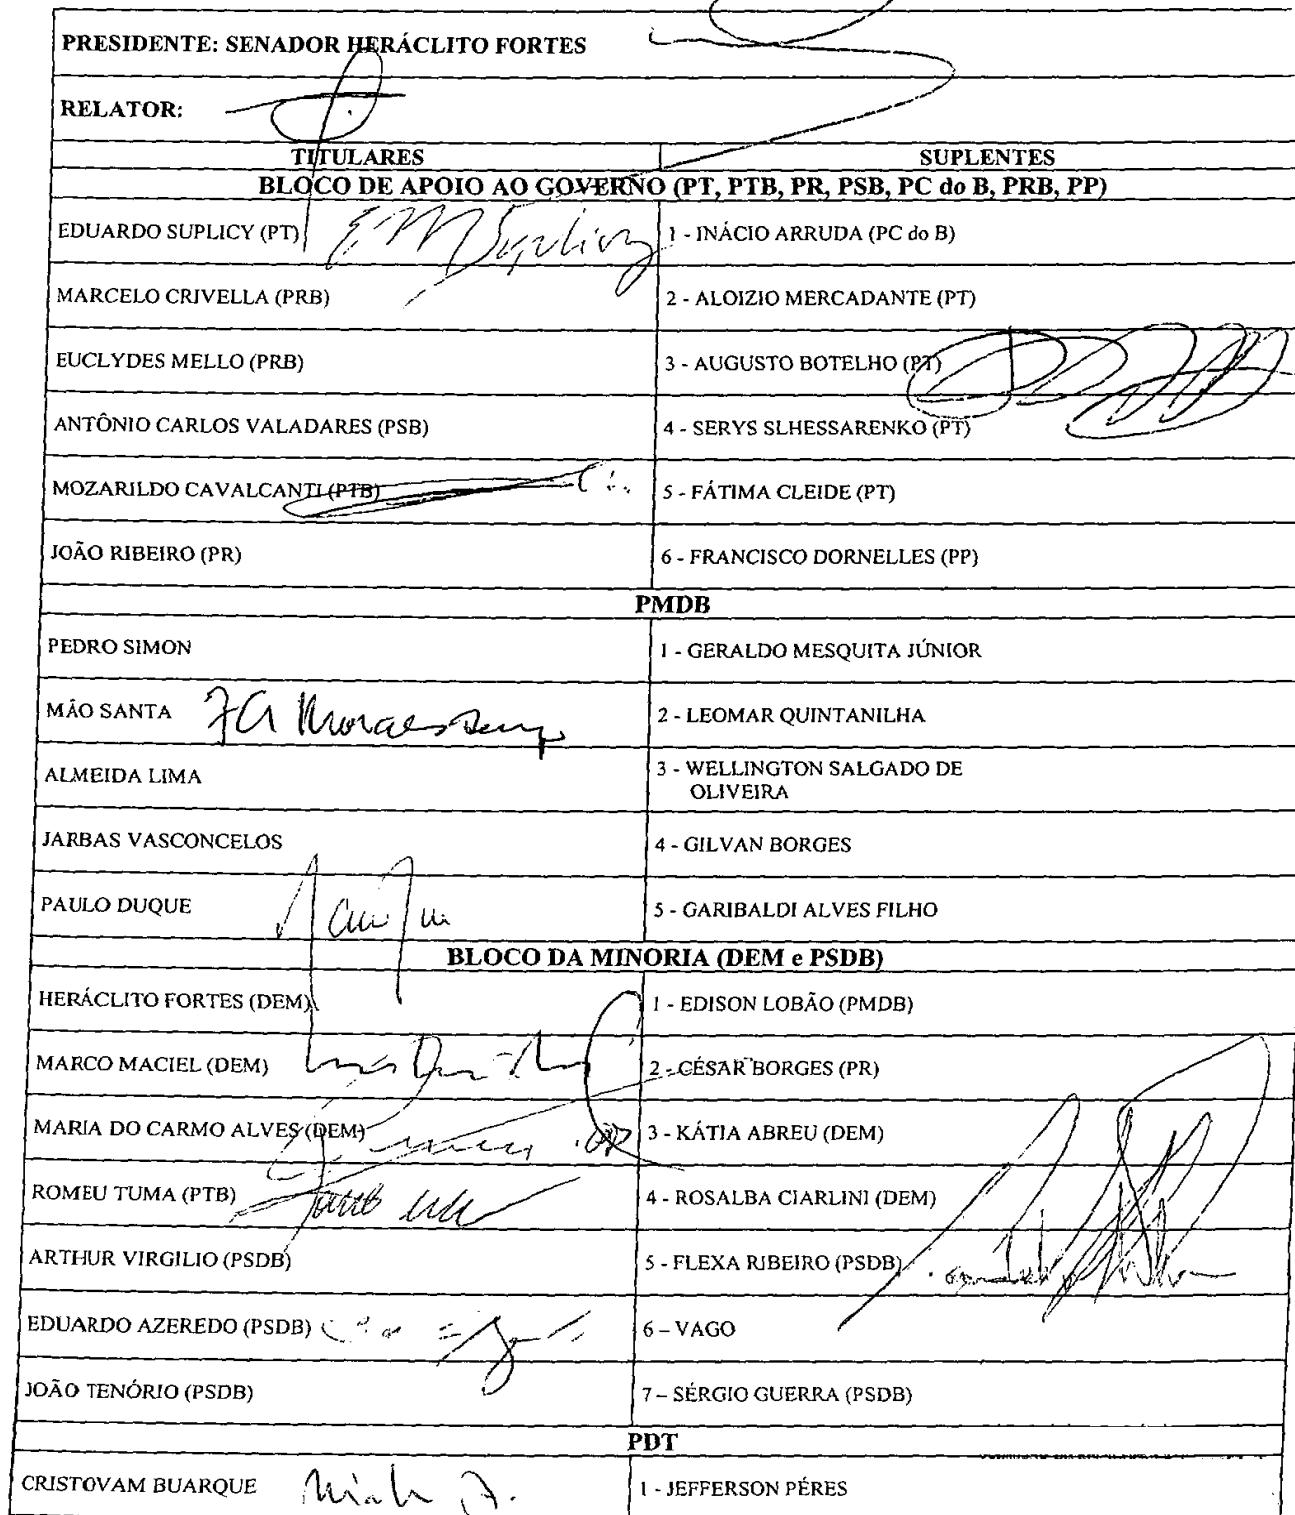 PRESIDENTE: SENADOR HERÁCLITO FORTES
RELATOR:
TITULARES SUPLENTES
BLOCO DE APOIO AO GOVERNO (PT, PTB, PR, PSB, PC do B, PRB, PP)
EDUARDO SUPLICY (PT) 1 - INÁCIO ARRUDA (PC do B)
MARCELO CRIVELLA (PRB) 2 - ALOIZIO MERCADANTE (PT)
EUCLYDES MELLO (PRB) 3 - AUGUSTO BOTELHO (PT)
ANTÔNIO CARLOS VALADARES (PSB) 4 - SERYS SLHESSARENKO (PT)
MOZARILDO CAVALCANTI (PTB) 5 - FÁTIMA CLEIDE (PT)
JOÃO RIBEIRO (PR) 6 - FRANCISCO DORNELLES (PP)
PMDB
PEDRO SIMON 1 - GERALDO MESQUITA JÚNIOR
MÃO SANTA 2 - LEOMAR QUINTANILHA
ALMEIDA LIMA 3 - WELLINGTON SALGADO DE
OLIVEIRA
JARBAS VASCONCELOS 4 - GILVAN BORGES
PAULO DUQUE 5 - GARIBALDI ALVES FILHO
BLOCO DA MINORIA (DEM e PSDB)
HERÁCLITO FORTES (DEM) 1 - EDISON LOBÃO (PMDB)
MARCO MACIEL (DEM) 2 - CÉSAR BORGES (PR)
MARIA DO CARMO ALVES (DEM) 3 - KÁTIA ABREU (DEM)
ROMEU TUMA (PTB) 4 - ROSALBA CIARLINI (DEM)
ARTHUR VIRGILIO (PSDB) 5 - FLEXA RIBEIRO (PSDB)
EDUARDO AZEREDO (PSDB) 6 – VAGO
JOÃO TENÓRIO (PSDB) 7 – SÉRGIO GUERRA (PSDB)
PDT
CRISTOVAM BUARQUE 1 - JEFFERSON PÉRES